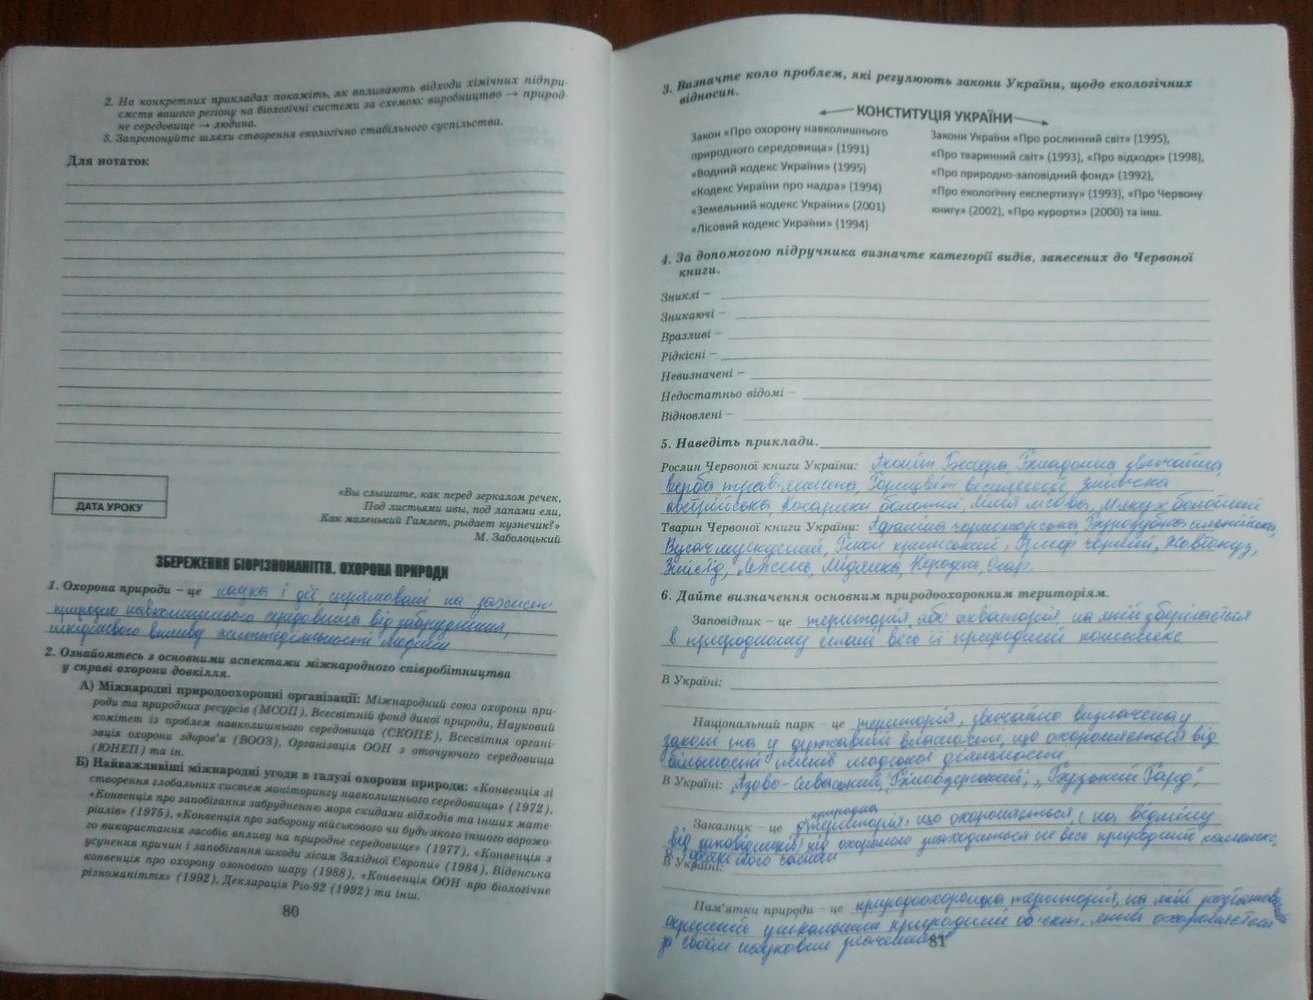 2. На конкретних прикладах покажіть, як впливають відходи хімічних підпри-
ємств вашого регіону на біологічні системи за схемою: виробництво → природ-
не середовище → людина.
3. Запропонуйте шляхи створення екологічно стабільного суспільства.
Для нотаток
ДАТА УРОКУ
«Вы слышите, как перед зеркалом речек,
Под листьями ивы, под лапами ели,
Как маленький Гамлет, рыдает кузнечик?»
М. Заболоцький
ЗБЕРЕЖЕННЯ БІОРІЗНОМАНІТТЯ. ОХОРОНА ПРИРОДИ
1. Охорона природи – це наука і дії спрямовані на захист
природно навколишнього середовища від забруднення,
шкідливого впливу життєдіяльності людини
2. Ознайомтесь з основними аспектами міжнародного співробітництва
у справі охорони довкілля.
А) Міжнародні природоохоронні організації: Міжнародний союз охорони при-
роди та природних ресурсів (МСОП), Всесвітній фонд дикої природи, Науковий
комітет із проблем навколишнього середовища (СКОПЕ), Всесвітня органі-
зація охорони здоров'я (ВООЗ), Організація ООН з оточуючого середовища
(ЮНЕП) та ін.
Б) Найважливіші міжнародні угоди в галузі охорони природи: «Конвенція зі
створення глобальних систем моніторингу навколишнього середовища» (1972),
«Конвенція про запобігання забрудненню моря скидами відходів та інших мате-
ріалів» (1975), «Конвенція про заборону військового чи будь-якого іншого ворожо-
го використання засобів впливу на природне середовище» (1977), «Конвенція з
усунення причин і запобігання шкоди лісам Західної Європи» (1984), Віденська
конвенція про охорону озонового шару (1988), «Конвенція ООН про біологічне
різноманіття» (1992), Декларація Ріо-92 (1992) та інш.
80
3. Визначте коло проблем, які регулюють закони України, щодо екологічних
відносин.
КОНСТИТУЦІЯ УКРАЇНИ
Закон «Про охорону навколишнього
природного середовища» (1991)
«Водний кодекс України» (1995)
«Кодекс України про надра» (1994)
«Земельний кодекс України» (2001)
«Лісовий кодекс України» (1994)
Закони України «Про рослинний світ» (1995),
«Про тваринний світ» (1993), «Про відходи» (1998),
«Про природно-заповідний фонд» (1992),
«Про екологічну експертизу» (1993), «Про Червону
книгу» (2002), «Про курорти» (2000) та інш.
4. За допомогою підручника визначте категорії видів, занесених до Червоної
книги.
Зниклі –
Зникаючі –
Вразливі –
Рідкісні –
Невизначені –
Недостатньо відомі –
Відновлені –
5. Наведіть приклади.
Рослин Червоної книги України: Аконіт Бессера, Беладонна звичайна,
верба трав'яниста, Горицвіт весняний
австрійська, Косарики болотні, Лілія лісова,
Тварин Червоної книги України: Афаліна чорноморська
Вусач мускусний, Гекон кримський, Гриф чорний, Жовтопуз,
6. Дайте визначення основним природоохоронним територіям.
Заповідник – це територія або акваторія на якій зберігається
в природному стані весь її природний комплекс
В Україні:
Національний парк – це територія, звичайно визначена у
законі та у державній власності, що охороняється від
більшості людської діяльності
В Україні: „Азово-Сиваський", „Білоозерський", „Бузький Гард",
Заказник – це природна територія, що охороняється, на відміну
від заповідників, під охороною знаходиться не весь природний комплекс,
В Україні:
Пам'ятки природи – це природоохоронна територія, на якій розташований
окремий унікальний природний об'єкт, який охороняється
за своїм науковим значенням
81